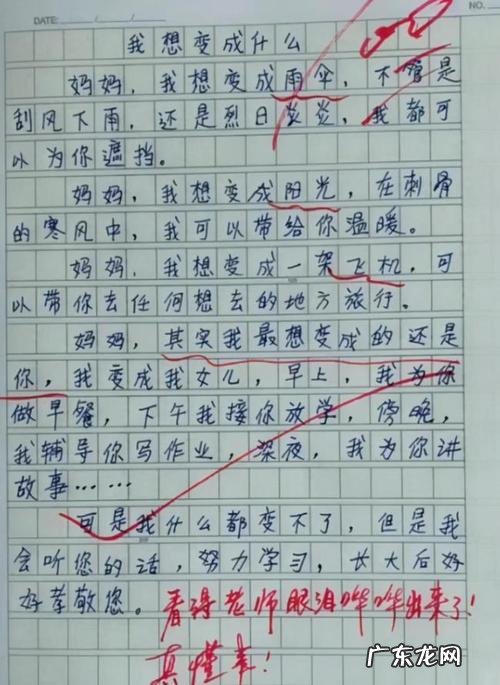 DATE:
NO.
我想变成什么
妈妈，我想变成雨伞，不管是
刮风下雨，还是烈日炎炎，我都可
以为你遮挡。
妈妈，我想变成阳光，在刺骨
的寒风中，我可以带给你温暖。
妈妈，我想变成一架飞机，可
以带你去任何想去的地方旅行。
妈妈，其实我最想变成的还是
你，我变成我女儿，早上，我为你
做早餐，下午我接你放学，傍晚，
我辅导你写作业，深夜，我为你讲
故事……
可是我什么都变不了，但是我
会听您的话，努力学习，长大后好
好孝敬您。看得老师眼泪哗哗出来了！
真懂事！
广东龙网